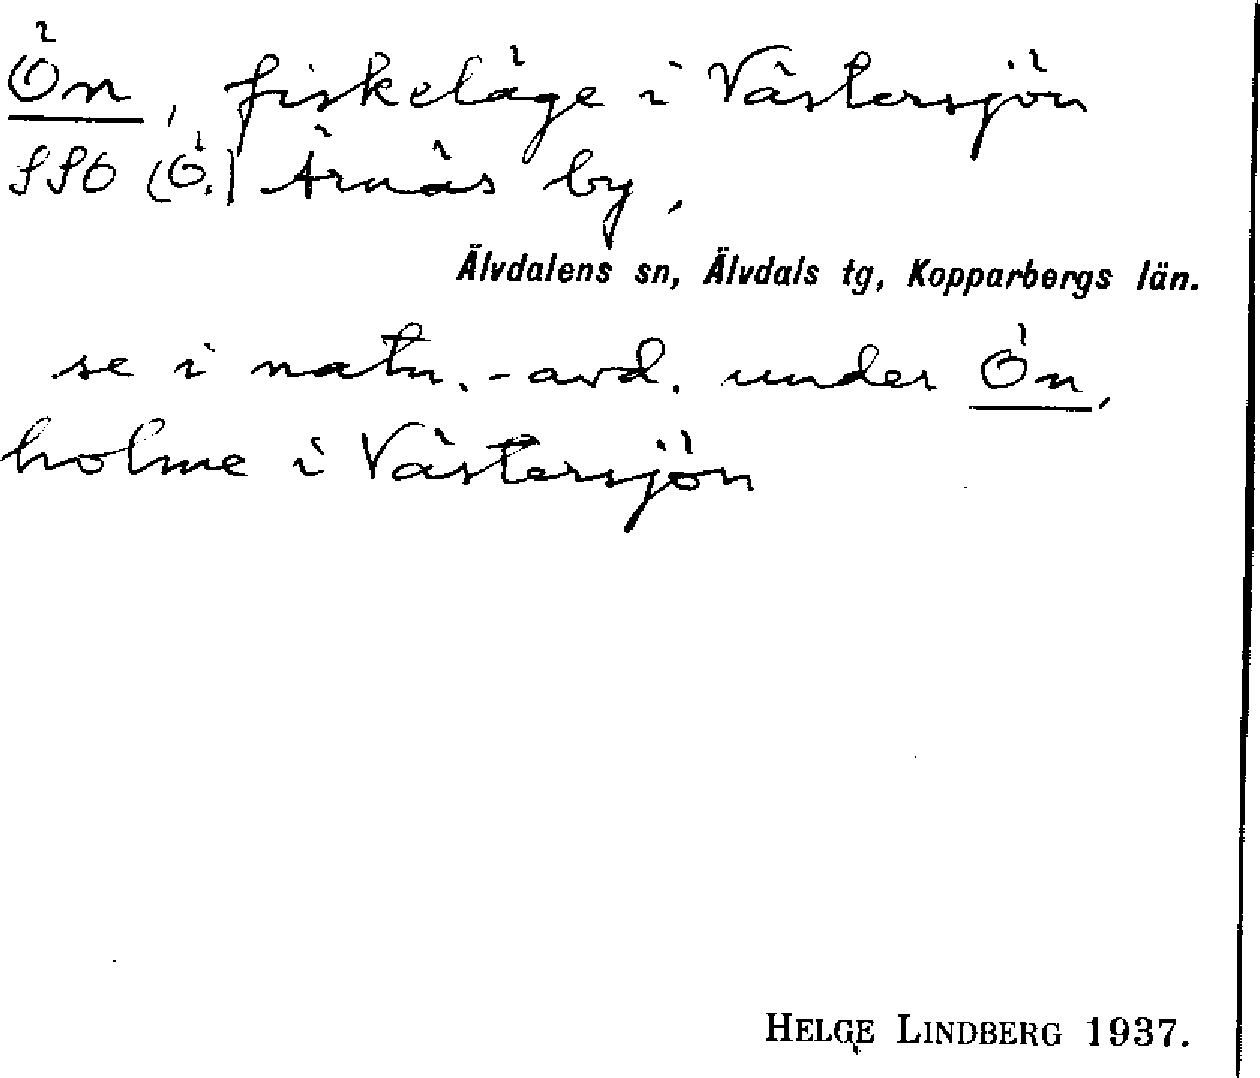 Ön, fiskeläge i Västersjön
SSO (Ö.) Årnäs by,
Älvdalens sn, Älvdals tg, Kopparbergs län.
se i natn.-avd. under Ön,
holme i Västersjön
HELGE LINDBERG 1937.